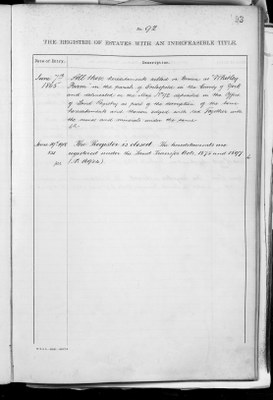 93
No 92
THE REGISTER OF ESTATES WITH AN INDEFEASIBLE TITLE.
Date of Entry.
Description.
June 7th
1865
All those hereditaments called or known as
Farm in the parish of in the County of York
and delineated on the Map No 92 deposited in the Office
of Land Registry as part of the description of the same
hereditaments and thereon edged with red Together with
the mines and minerals under the same
The Register is closed. The hereditaments are
registered under the Land Transfer Acts, 1875 and 1897